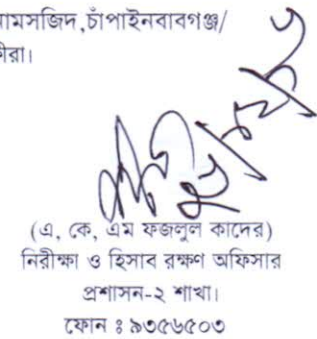 নামসজিদ,চাঁপাইনবাবগঞ্জ/
রা।
(এ, কে, এম ফজলুল কাদের)
নিরীক্ষা ও হিসাব রক্ষণ অফিসার
প্রশাসন-২ শাখা।
ফোন ঃ ৯৩৫৬৫০৩